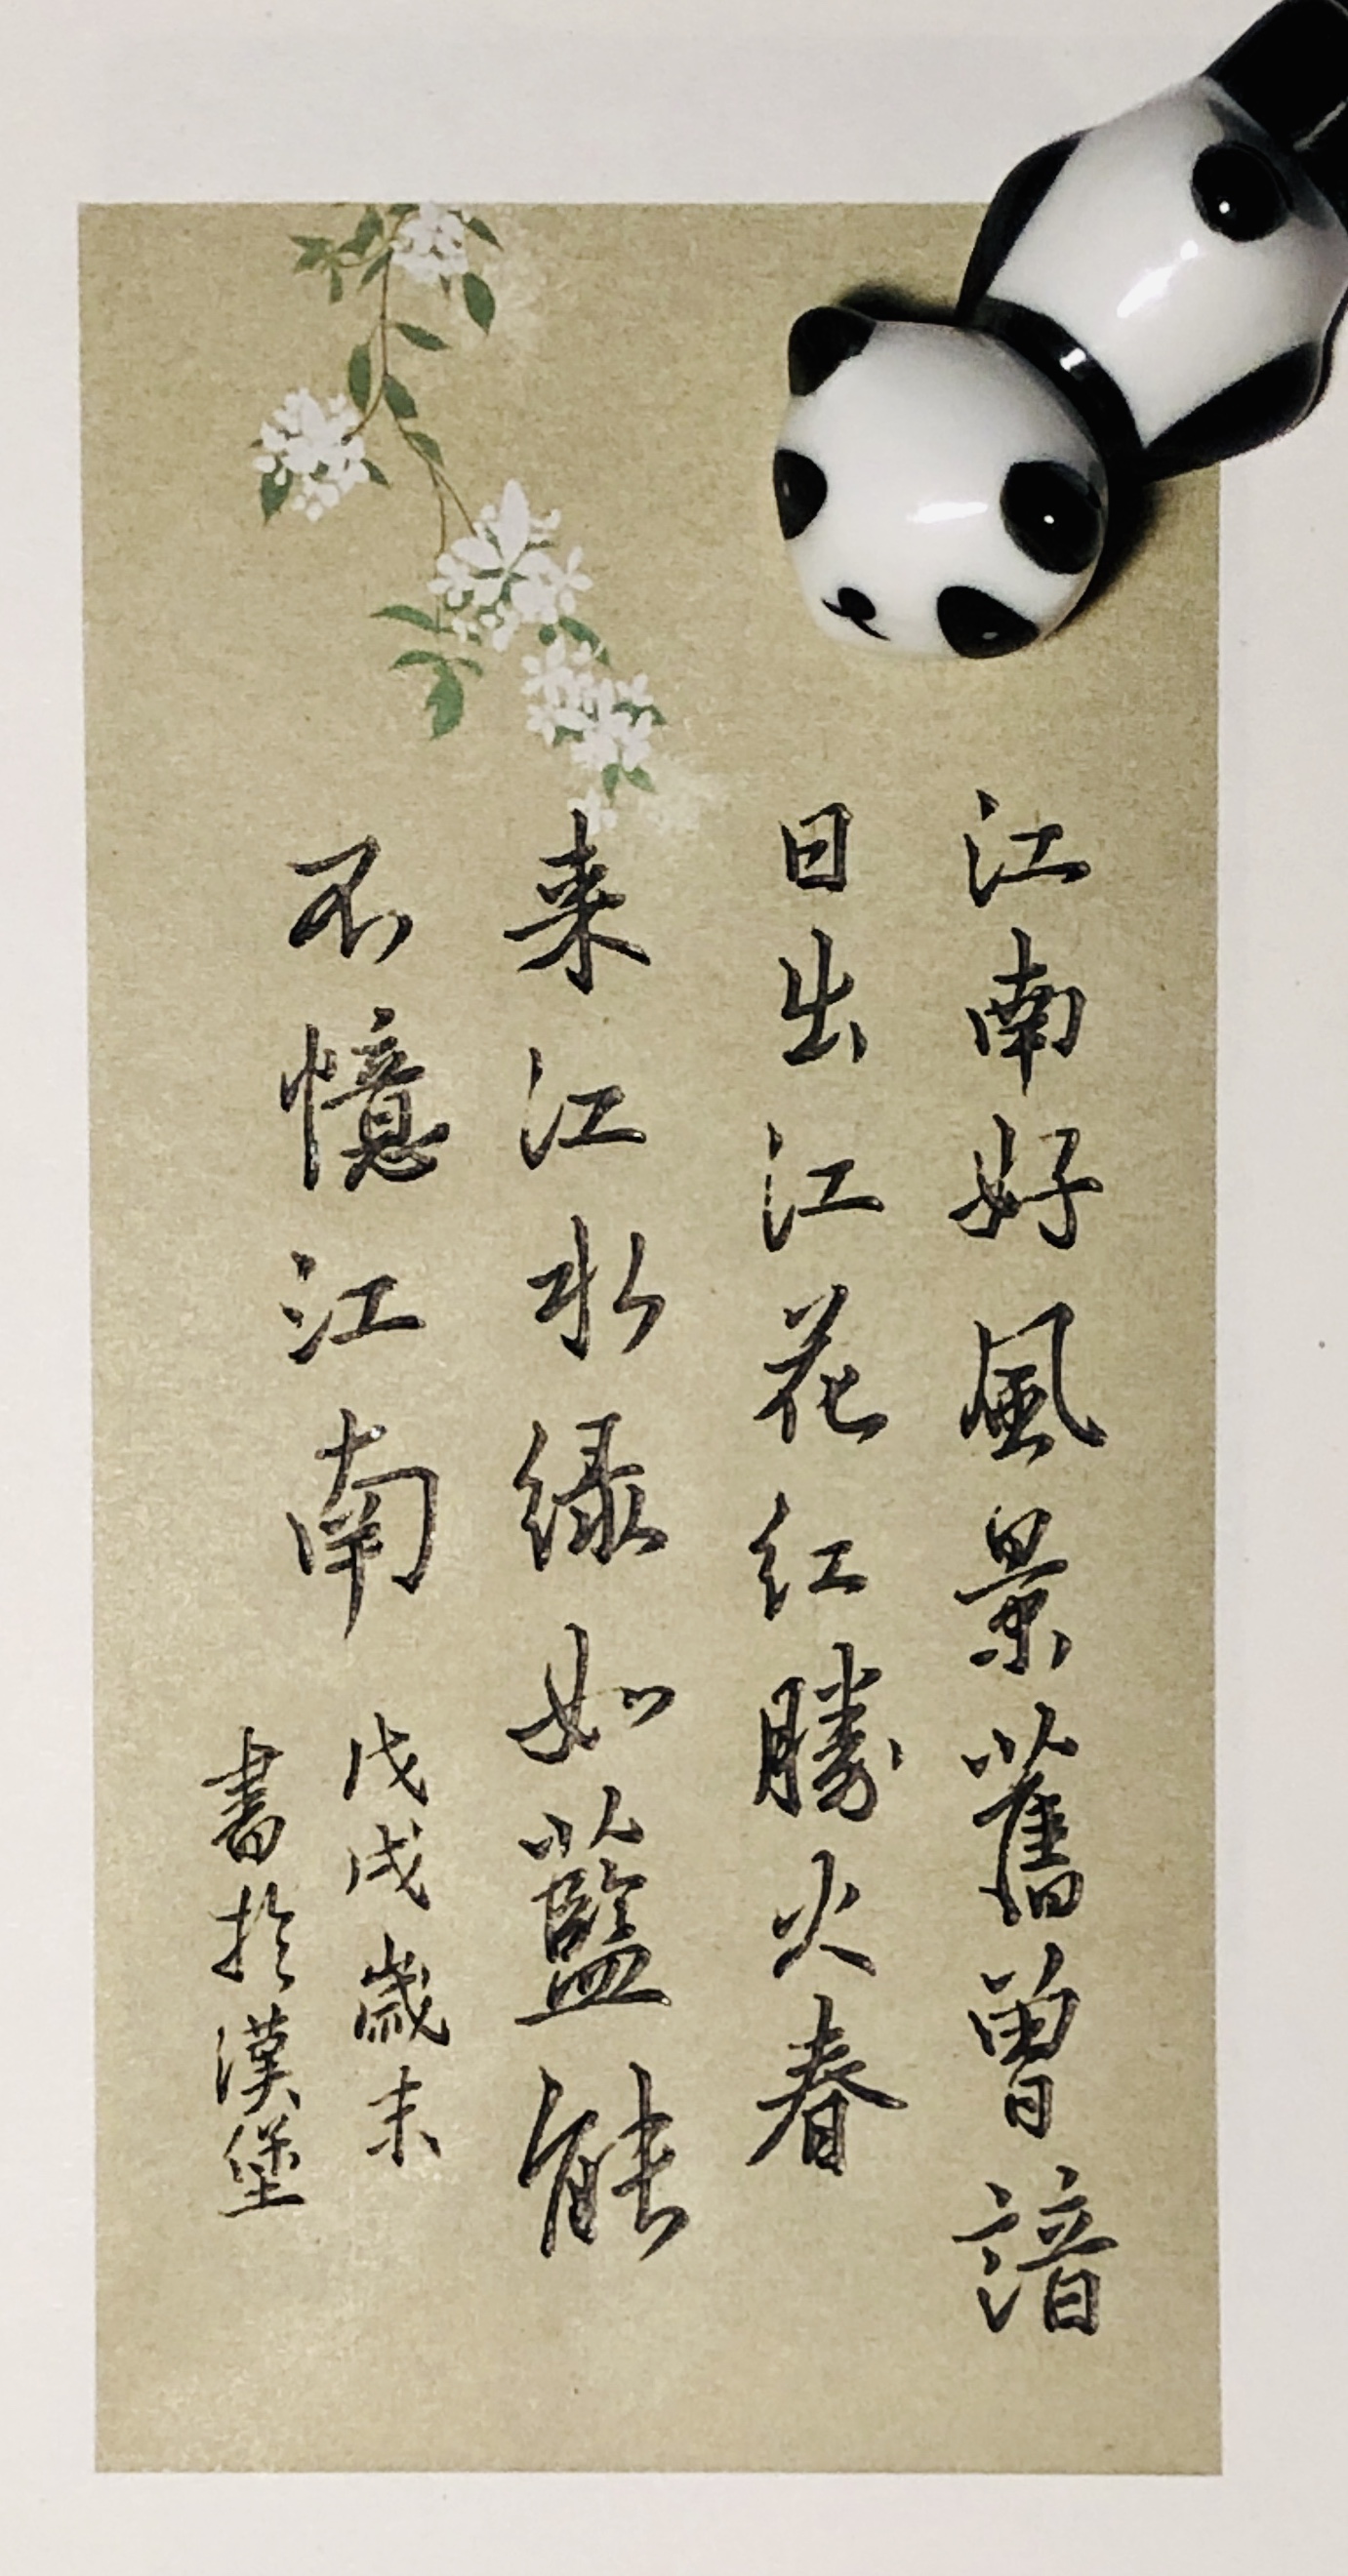 江南好風景舊曾諳
日出江花红勝火春
来江水绿如藍能
不憶江南
戊戌歲末
書於漢堡